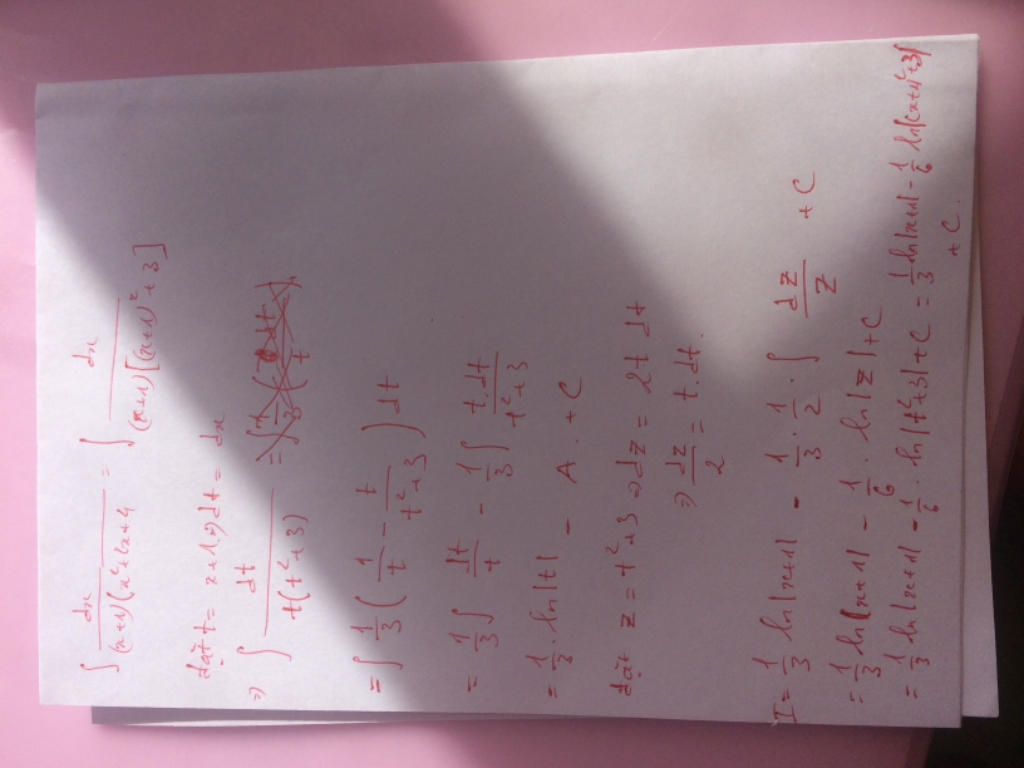 ∫ dx / (x+1)(x²+2x+4) = ∫ dx / (x+1)[(x+1)²+3]
đặt t = x+1 ⇒ dt = dx
⇒ ∫ dt / t(t²+3) =
= ∫ 1/3 (1/t - t/(t²+3)) dt
= 1/3 ∫ dt/t - 1/3 ∫ t.dt/(t²+3)
= 1/3 . ln|t| - A . + C
đặt z = t²+3 ⇒ dz = 2t dt
⇒ dz/2 = t.dt.
I = 1/3 ln|x+1| - 1/3 . 1/2 . ∫ dz/z + C
= 1/3 ln|x+1| - 1/6 . ln|z| + C
= 1/3 ln|x+1| - 1/6 . ln|t²+3| + C = 1/3 ln|x+1| - 1/6 ln|(x+1)²+3|
+ C.